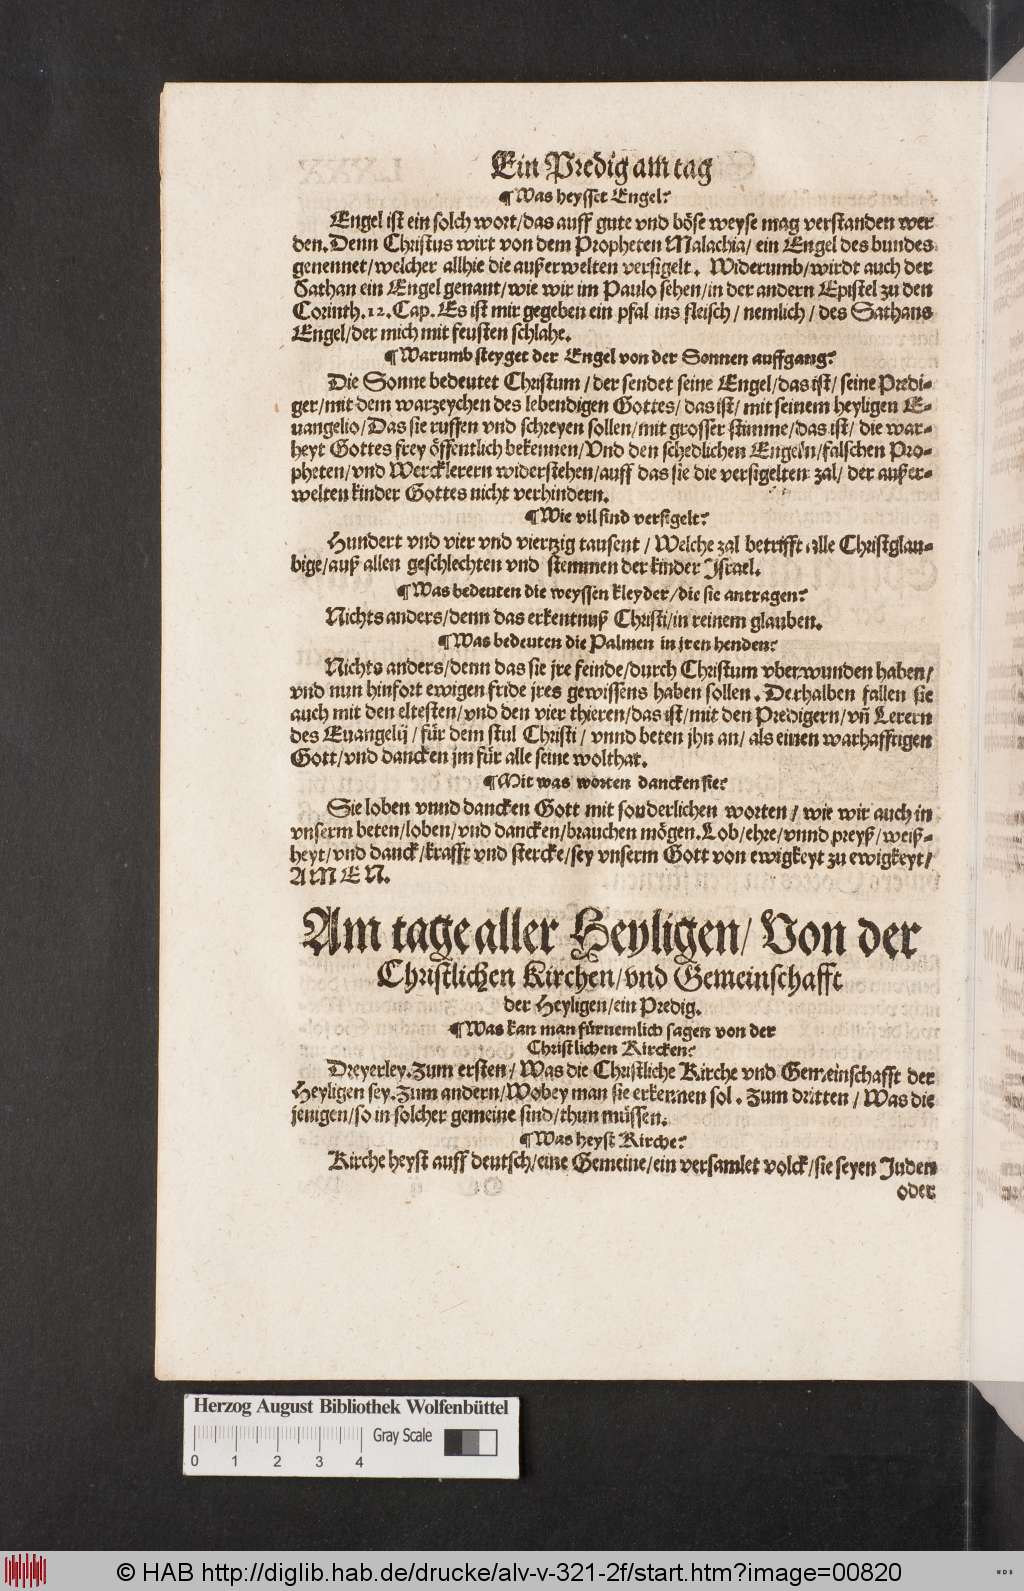 Ein Predig am tag
¶ Was heysset Engel?
Engel ist ein solch wort/das auff gute vnd böse weyse mag verstanden wer
den. Denn Christus wirt von dem Propheten Malachia/ ein Engel des bundes
genennet/welcher allhie die außerwelten versigelt. Widerumb/wirdt auch der
Sathan ein Engel genant/wie wir im Paulo sehen/in der andern Epistel zu den
Corinth.12.Cap. Es ist mir gegeben ein pfal ins fleisch/ nemlich/ des Sathans
Engel/der mich mit feusten schlahe.
¶ Warumb steyget der Engel von der Sonnen auffgang?
Die Sonne bedeutet Christum/ der sendet seine Engel/das ist/ seine Predi-
ger/mit dem warzeychen des lebendigen Gottes/ das ist/ mit seinem heyligen E-
uangelio/Das sie ruffen vnd schreyen sollen/mit grosser stimme/das ist/ die war-
heyt Gottes frey öffentlich bekennen/Vnd den schedlichen Engeln/falschen Pro-
pheten/vnd Wercklerern widerstehen/auff das sie die versigelten zal/ der außer-
welten kinder Gottes nicht verhindern.
¶ Wie vil sind versigelt?
Hundert vnd vier vnd viertzig tausent/ Welche zal betrifft alle Christglau-
bige/auß allen geschlechten vnd stemmen der kinder Israel.
¶ Was bedeuten die weyssen kleyder/die sie antragen?
Nichts anders/denn das erkentnuß Christi/in reinem glauben.
¶ Was bedeuten die Palmen in jren henden?
Nichts anders/denn das sie jre feinde/durch Christum vberwunden haben/
vnd nun hinfort ewigen fride jres gewissens haben sollen. Derhalben fallen sie
auch mit den eltesten/vnd den vier thieren/das ist/mit den Predigern/vñ Lerern
des Euangelij/ für dem stul Christi/ vnnd beten jhn an/ als einen warhafftigen
Gott/vnd dancken jm für alle seine wolthat.
¶ Mit was worten dancken sie?
Sie loben vnnd dancken Gott mit sonderlichen worten/ wie wir auch in
vnserm beten/loben/vnd dancken/brauchen mögen.Lob/ehre/vnnd preyß/weiß-
heyt/vnd danck/krafft vnd stercke/sey vnserm Gott von ewigkeyt zu ewigkeyt/
AMEN.
Am tage aller Heyligen/ Von der
Christlichen Kirchen/vnd Gemeinschafft
der Heyligen/ein Predig.
¶ Was kan man fürnemlich sagen von der
Christlichen Kircken?
Dreyerley.Zum ersten/ Was die Christliche Kirche vnd Gemeinschafft der
Heyligen sey.Zum andern/Wobey man sie erkennen sol. Zum dritten/ Was die
jenigen/so in solcher gemeine sind/thun müssen.
¶ Was heyst Kirche?
Kirche heyst auff deutsch/eine Gemeine/ein versamlet volck/sie seyen Juden
oder
Herzog August Bibliothek Wolfenbüttel
Gray Scale
0 1 2 3 4
© HAB http://diglib.hab.de/drucke/alv-v-321-2f/start.htm?image=00820